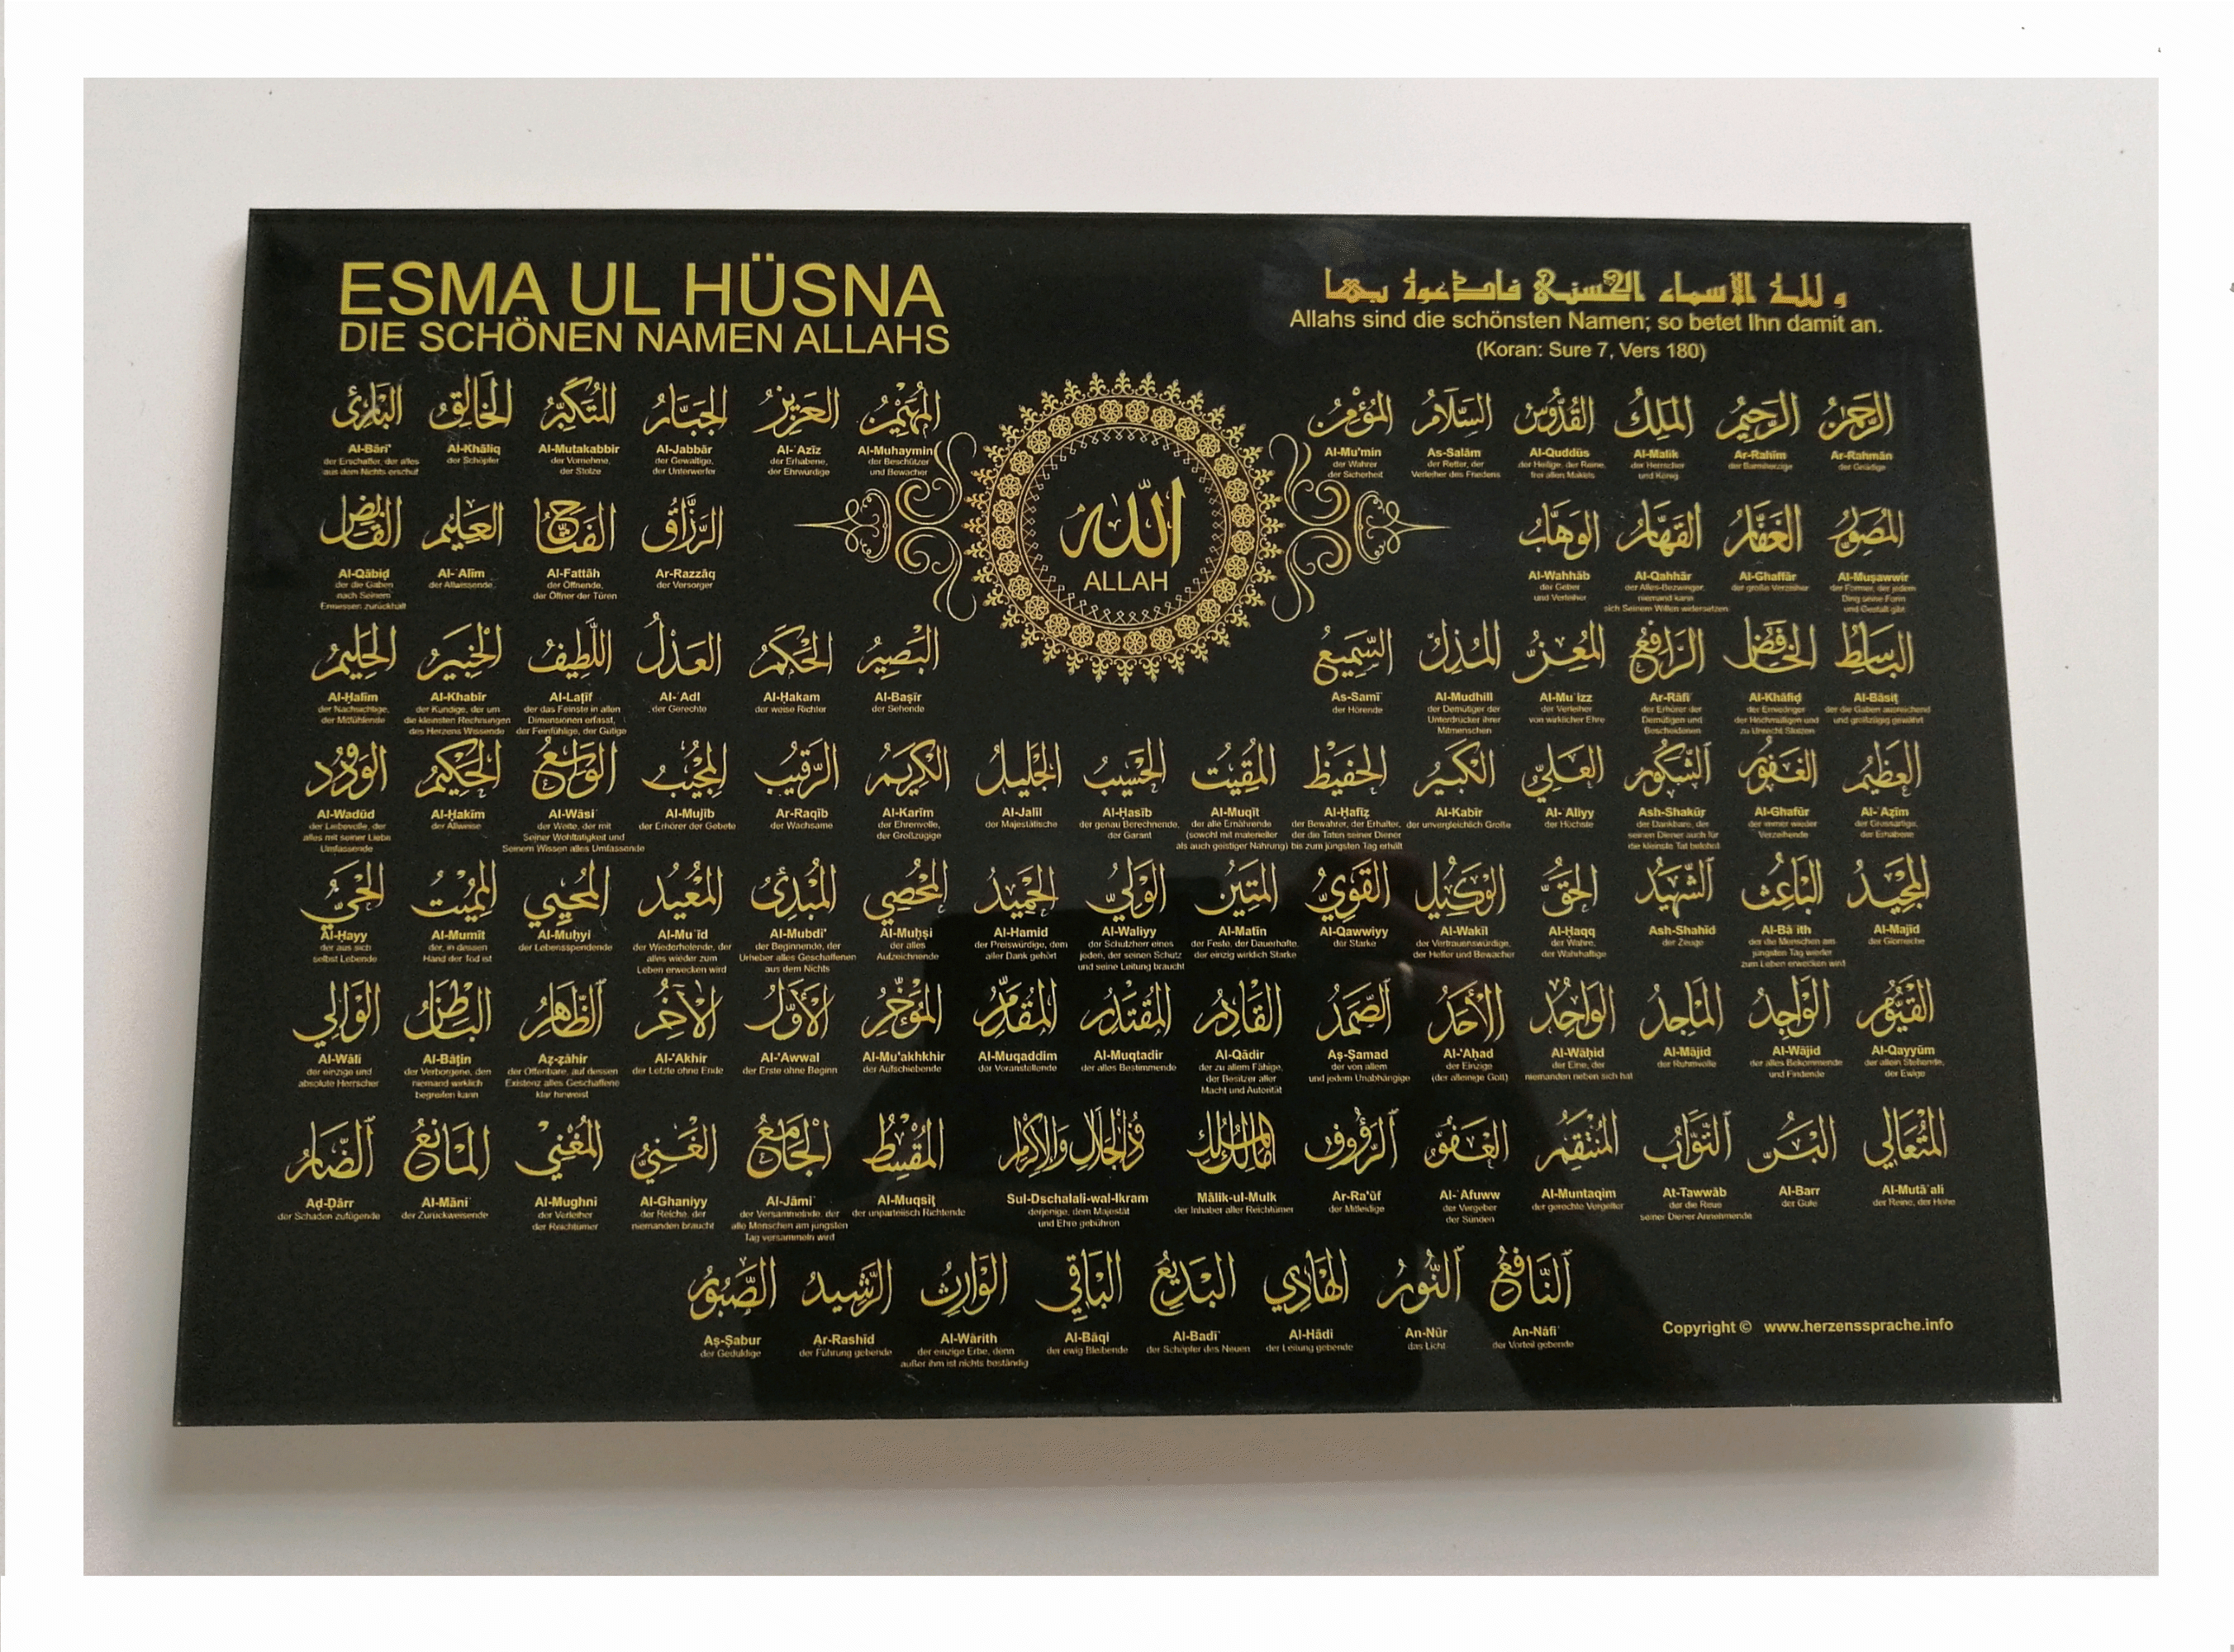 ESMA UL HÜSNA
DIE SCHÖNEN NAMEN ALLAHS
و لله الأسماء الحسنى فادعوه بها
Allahs sind die schönsten Namen; so betet Ihn damit an.
(Koran: Sure 7, Vers 180)
الله
ALLAH
الرَّحْمٰنُ
Ar-Rahmān
der Gnädige
الرَّحِيمُ
Ar-Rahīm
der Barmherzige
المَلِكُ
Al-Malik
der Herrscher
und König
القُدُّوسُ
Al-Quddūs
der Heilige, der Reine,
frei allen Makels
السَّلَامُ
As-Salām
der Retter, der
Verleiher des Friedens
المُؤْمِنُ
Al-Mu'min
der Wahrer
der Sicherheit
المُهَيْمِنُ
Al-Muhaymin
der Beschützer
und Bewacher
العَزِيزُ
Al-ʿAzīz
der Erhabene,
der Ehrwürdige
الجَبَّارُ
Al-Jabbār
der Gewaltige,
der Unterwerfer
المُتَكَبِّرُ
Al-Mutakabbir
der Vornehme,
der Stolze
الخَالِقُ
Al-Khāliq
der Schöpfer
البَارِئُ
Al-Bāri'
der Erschaffer, der alles
aus dem Nichts erschuf
المُصَوِّرُ
Al-Muṣawwir
der Former, der jedem
Ding seine Form
und Gestalt gibt
الغَفَّارُ
Al-Ghaffār
der große Verzeiher
القَهَّارُ
Al-Qahhār
der Alles-Bezwinger,
niemand kann
sich Seinem Willen widersetzen
الوَهَّابُ
Al-Wahhāb
der Geber
und Verleiher
الرَّزَّاقُ
Ar-Razzāq
der Versorger
الفَتَّاحُ
Al-Fattāh
der Öffnende,
der Öffner der Türen
العَلِيمُ
Al-ʿAlīm
der Allwissende
القَابِضُ
Al-Qābiḍ
der die Gaben
nach Seinem
Ermessen zurückhält
البَاسِطُ
Al-Bāsiṭ
der die Gaben ausreichend
und großzügig gewährt
الخَافِضُ
Al-Khāfiḍ
der Erniedriger
der Hochmütigen und
zu Unrecht Stolzen
الرَّافِعُ
Ar-Rāfiʿ
der Erhörer der
Demütigen und
Bescheidenen
المُعِزُّ
Al-Muʿizz
der Verleiher
von wirklicher Ehre
المُذِلُّ
Al-Mudhill
der Demütiger der
Unterdrücker ihrer
Mitmenschen
السَّمِيعُ
As-Samīʿ
der Hörende
البَصِيرُ
Al-Baṣīr
der Sehende
الحَكَمُ
Al-Ḥakam
der weise Richter
العَدْلُ
Al-ʿAdl
der Gerechte
اللَّطِيفُ
Al-Laṭīf
der das Feinste in allen
Dimensionen erfasst,
der Feinfühlige, der Gütige
الخَبِيرُ
Al-Khabīr
der Kundige, der um
die kleinsten Rechnungen
des Herzens Wissende
الحَلِيمُ
Al-Ḥalīm
der Nachsichtige,
der Mitfühlende
العَظِيمُ
Al-ʿAẓīm
der Grossartige,
der Erhabene
الغَفُورُ
Al-Ghafūr
der immer wieder
Verzeihende
الشَّكُورُ
Ash-Shakūr
der Dankbare, der
seinen Diener auch für
die kleinste Tat belohnt
العَلِيُّ
Al-ʿAliyy
der Höchste
الكَبِيرُ
Al-Kabīr
der unvergleichlich Große
الحَفِيظُ
Al-Ḥafīẓ
der Bewahrer, der Erhalter,
der die Taten seiner Diener
bis zum jüngsten Tag erhält
المُقِيتُ
Al-Muqīt
der alle Ernährende
(sowohl mit materieller
als auch geistiger Nahrung)
الحَسِيبُ
Al-Ḥasīb
der genau Berechnende,
der Garant
الجَلِيلُ
Al-Jalīl
der Majestätische
الكَرِيمُ
Al-Karīm
der Ehrenvolle,
der Großzügige
الرَّقِيبُ
Ar-Raqīb
der Wachsame
المُجِيبُ
Al-Mujīb
der Erhörer der Gebete
الوَاسِعُ
Al-Wāsiʿ
der Weite, der mit
Seiner Wohltätigkeit und
Seinem Wissen alles Umfassende
الحَكِيمُ
Al-Ḥakīm
der Allweise
الوَدُودُ
Al-Wadūd
der Liebevolle, der
alles mit seiner Liebe
Umfassende
المَجِيدُ
Al-Majīd
der Glorreiche
البَاعِثُ
Al-Bāʿith
der die Menschen am
jüngsten Tag wieder
zum Leben erwecken wird
الشَّهِيدُ
Ash-Shahīd
der Zeuge
الحَقُّ
Al-Ḥaqq
der Wahre,
der Wahrhaftige
الوَكِيلُ
Al-Wakīl
der Vertrauenswürdige,
der Helfer und Bewacher
القَوِيُّ
Al-Qawwiyy
der Starke
المَتِينُ
Al-Matīn
der Feste, der Dauerhafte,
der einzig wirklich Starke
الوَلِيُّ
Al-Waliyy
der Schutzherr eines
jeden, der seinen Schutz
und seine Leitung braucht
الحَمِيدُ
Al-Hamid
der Preiswürdige, dem
aller Dank gehört
المُحْصِي
Al-Muḥṣi
der alles
Aufzeichnende
المُبْدِئُ
Al-Mubdi'
der Beginnende, der
Urheber alles Geschaffenen
aus dem Nichts
المُعِيدُ
Al-Muʿīd
der Wiederholende, der
alles wieder zum
Leben erwecken wird
المُحْيِي
Al-Muḥyi
der Lebensspendende
المُمِيتُ
Al-Mumīt
der, in dessen
Hand der Tod ist
الحَيُّ
Al-Ḥayy
der aus sich
selbst Lebende
القَيُّومُ
Al-Qayyūm
der allein Stehende,
der Ewige
الوَاجِدُ
Al-Wājid
der alles Bekommende
und Findende
المَاجِدُ
Al-Mājid
der Ruhmvolle
الوَاحِدُ
Al-Wāḥid
der Eine, der
niemanden neben sich hat
الأَحَدُ
Al-'Aḥad
der Einzige
(der alleinige Gott)
الصَّمَدُ
Aṣ-Ṣamad
der von allem
und jedem Unabhängige
القَادِرُ
Al-Qādir
der zu allem Fähige,
der Besitzer aller
Macht und Autorität
المُقْتَدِرُ
Al-Muqtadir
der alles Bestimmende
المُقَدِّمُ
Al-Muqaddim
der Voranstellende
المُؤَخِّرُ
Al-Mu'akhkhir
der Aufschiebende
الأَوَّلُ
Al-'Awwal
der Erste ohne Beginn
الآخِرُ
Al-'Akhir
der Letzte ohne Ende
الظَّاهِرُ
Aẓ-ẓāhir
der Offenbare, auf dessen
Existenz alles Geschaffene
klar hinweist
البَاطِنُ
Al-Bāṭin
der Verborgene, den
niemand wirklich
begreifen kann
الوَالِي
Al-Wāli
der einzige und
absolute Herrscher
المُتَعَالِي
Al-Mutāʿali
der Reine, der Hohe
البَرُّ
Al-Barr
der Gute
التَّوَّابُ
At-Tawwāb
der die Reue
seiner Diener Annehmende
المُنْتَقِمُ
Al-Muntaqim
der gerechte Vergelter
العَفُوُّ
Al-ʿAfuww
der Vergeber
der Sünden
الرَّؤُوفُ
Ar-Ra'ūf
der Mitleidige
مَالِكُ المُلْكِ
Mālik-ul-Mulk
der Inhaber aller Reichtümer
ذُو الجَلَالِ وَالإِكْرَامِ
Sul-Dschalali-wal-Ikram
derjenige, dem Majestät
und Ehre gebühren
المُقْسِطُ
Al-Muqsiṭ
der unparteiisch Richtende
الجَامِعُ
Al-Jāmiʿ
der Versammelnde, der
alle Menschen am jüngsten
Tag versammeln wird
الغَنِيُّ
Al-Ghaniyy
der Reiche, der
niemanden braucht
المُغْنِي
Al-Mughni
der Verleiher
der Reichtümer
المَانِعُ
Al-Māniʿ
der Zurückweisende
الضَّارُّ
Aḍ-Ḍārr
der Schaden zufügende
النَّافِعُ
An-Nāfiʿ
der Vorteil gebende
النُّورُ
An-Nūr
das Licht
الهَادِي
Al-Hādi
der Leitung gebende
البَدِيعُ
Al-Badīʿ
der Schöpfer des Neuen
البَاقِي
Al-Bāqi
der ewig Bleibende
الوَارِثُ
Al-Wārith
der einzige Erbe, denn
außer ihm ist nichts beständig
الرَّشِيدُ
Ar-Rashīd
der Führung gebende
الصَّبُورُ
Aṣ-Ṣabur
der Geduldige
Copyright © www.herzenssprache.info